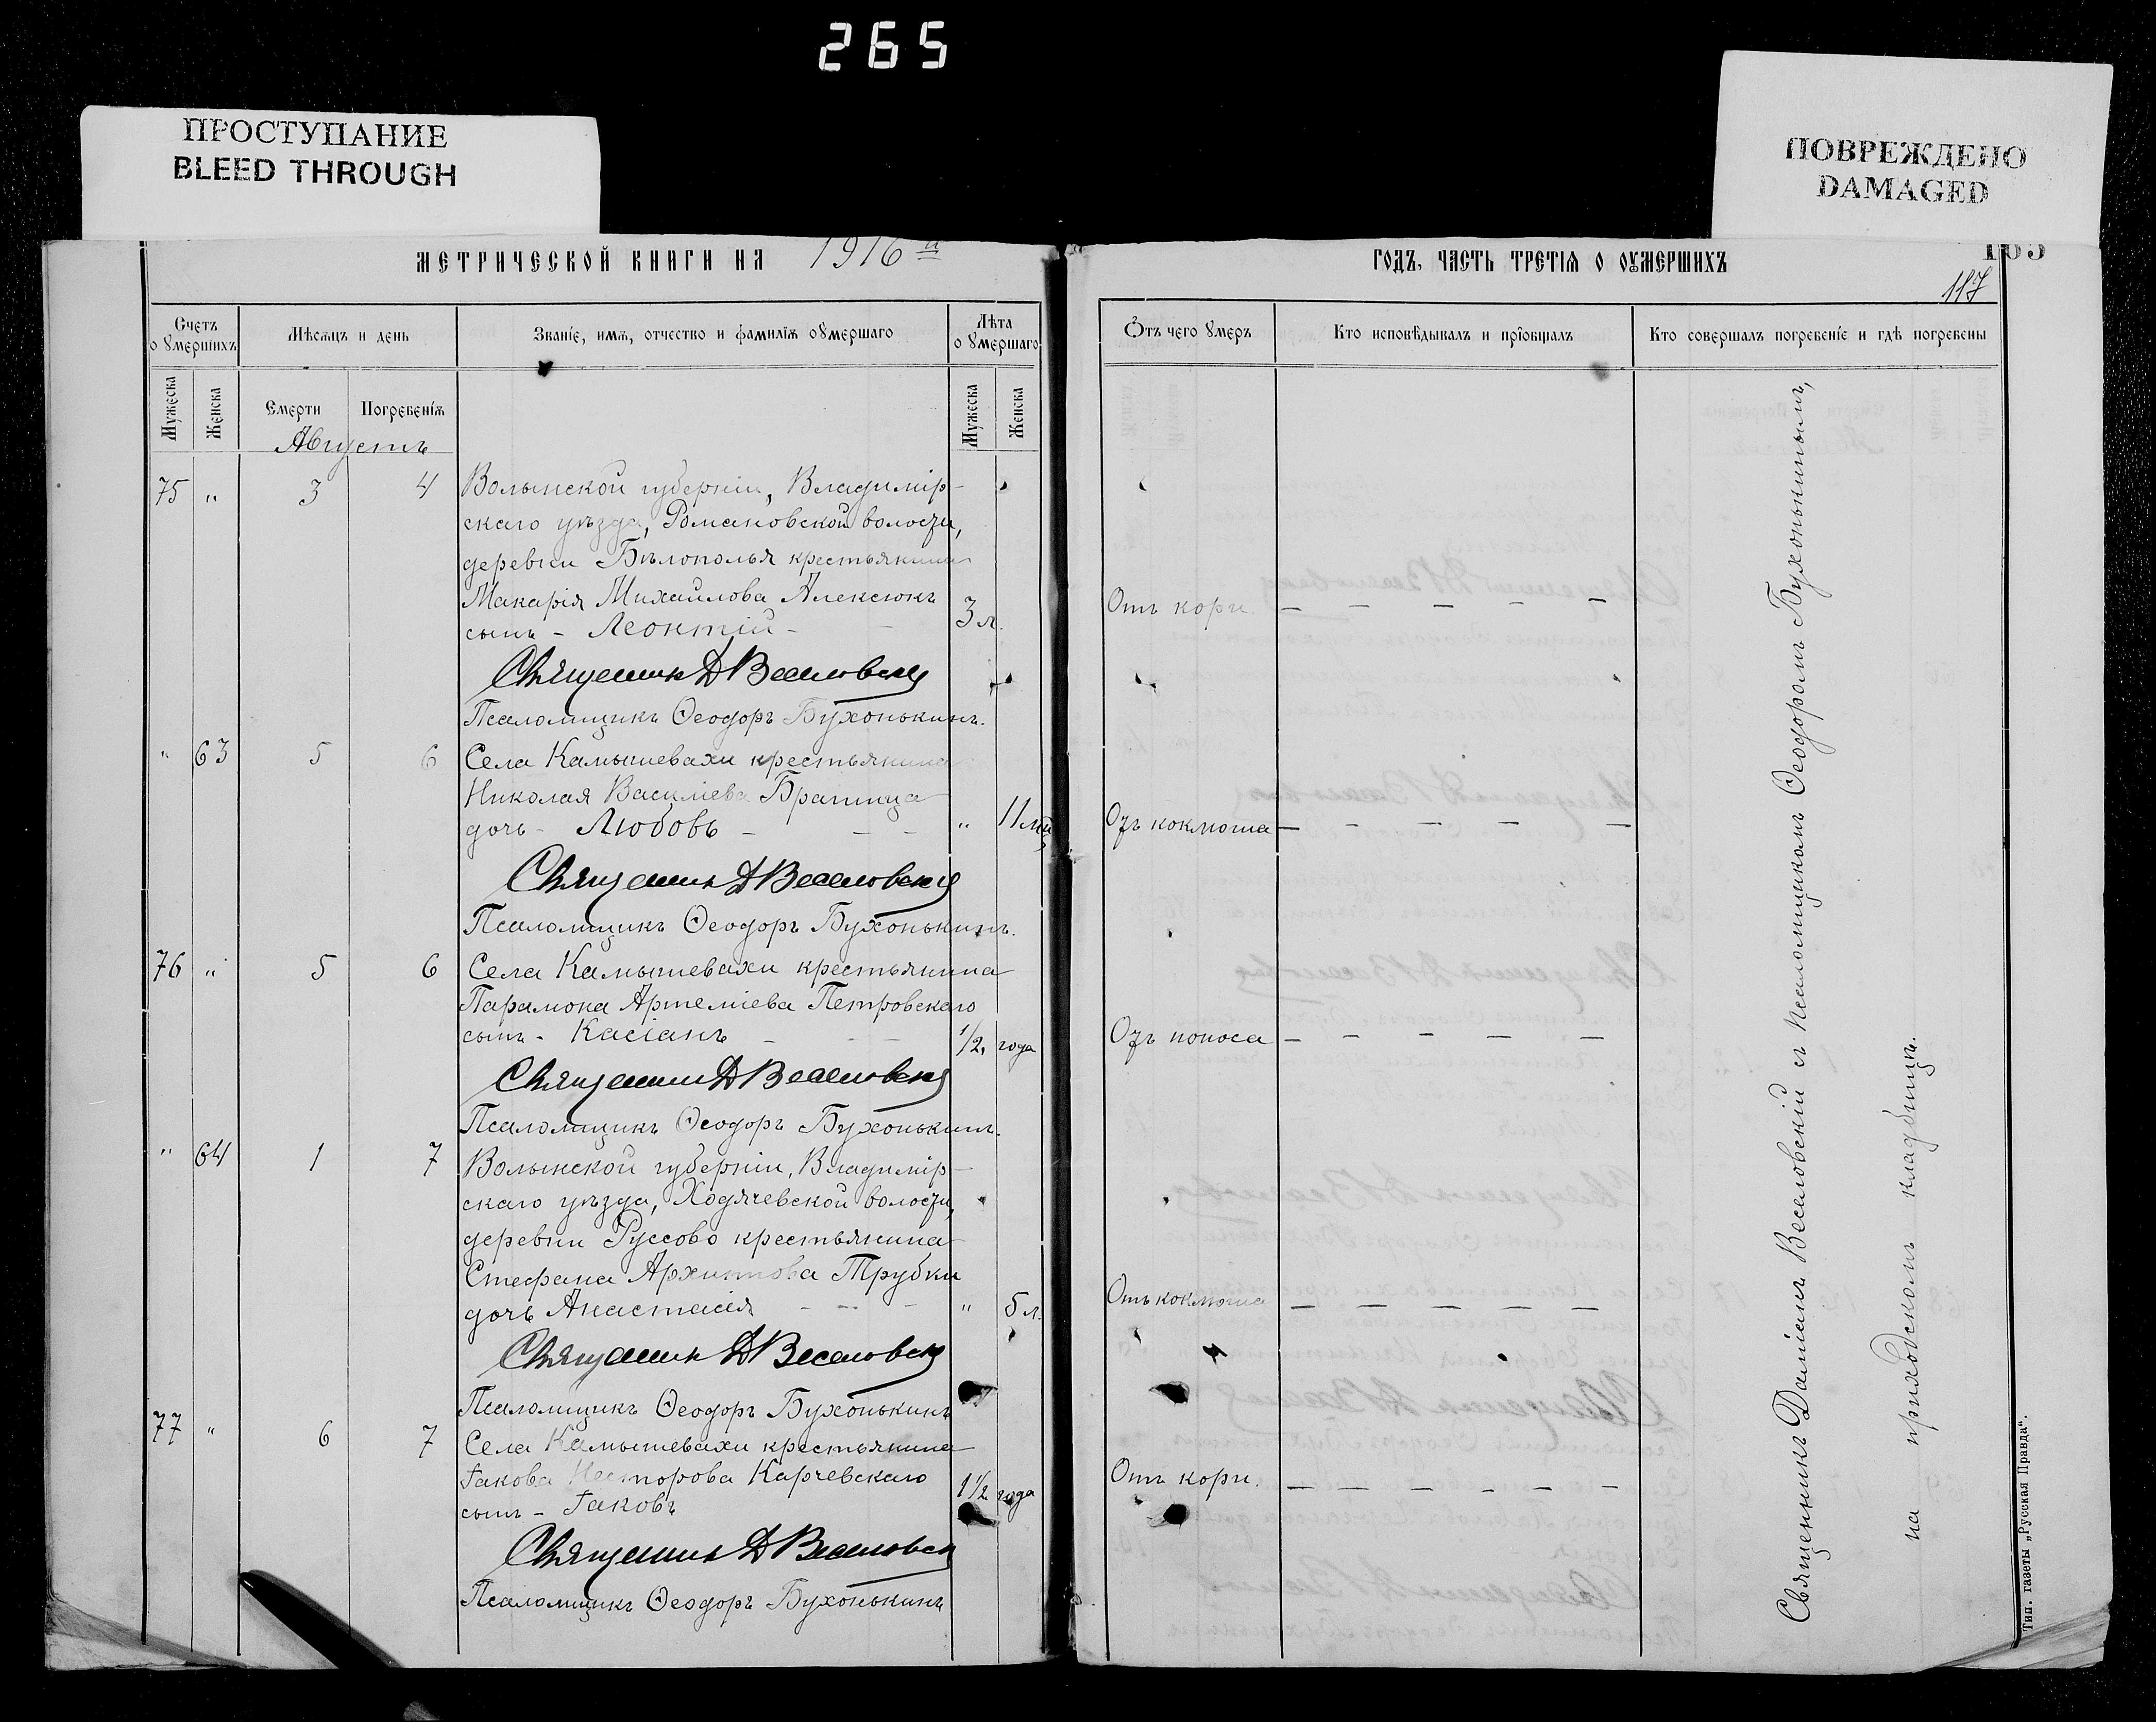 265
ПРОСТУПАНИЕ
BLEED THROUGH
ПОВРЕЖДЕНО
DAMAGED
МЕТРИЧЕСКОЙ КНИГИ НА 1916 й
Счетъ оумершихъ
Мѣсяцъ и день
Званіе, имя, отчество и фамилія оумершаго
Лѣта оумершаго
Мужеска
Женска
Смерти
Погребенія
Мужеска
Женска
Августъ
75 " 3 4 Волынской губерніи, Владимір-
скаго уѣзда, Романовской волости,
деревни Бѣлополья крестьянина
Макарія Михайлова Алексюкъ
сынъ - Леонтій - 3 л.
Священникъ Д Веселовскій
Псаломщикъ Ѳеодоръ Бухонькинъ.
" 63 5 6 Села Камышевахи крестьянина
Николая Василіева
дочь - Любовь - - - " 11 мц
Священникъ Д Веселовскій
Псаломщикъ Ѳеодоръ Бухонькинъ.
76 " 5 6 Села Камышевахи крестьянина
Парамона Артеміева Петровскаго
сынъ - Касіанъ - - - 1/2, года
Священникъ Д Веселовскій
Псаломщикъ Ѳеодоръ Бухонькинъ.
" 64 1 7 Волынской губерніи, Владимір-
скаго уѣзда, Ходячевской волости,
деревни Руссово крестьянина
Стефана Архипова Трубки
дочь Анастасія - - - " 5 л.
Священникъ Д Веселовскій
Псаломщикъ Ѳеодоръ Бухонькинъ
77 " 6 7 Села Камышевахи крестьянина
Іакова Несторова Карчевскаго
сынъ - Іаковъ 1 1/2 года
Священникъ Д Веселовскій
Псаломщикъ Ѳеодоръ Бухонькинъ
ГОДЪ, ЧАСТЬ ТРЕТІЯ О ОУМЕРШИХЪ
165
117
Отъ чего умеръ
Кто исповѣдывалъ и пріобщалъ
Кто совершалъ погребеніе и гдѣ погребены
Отъ кори. - - - - -
Отъ коклюша - - - - - -
Отъ поноса - - - - -
Отъ коклюша - - - - - -
Отъ кори. - - - - - -
Священникъ Даміанъ Веселовскій съ псаломщикомъ Ѳеодоромъ Бухонькинымъ,
на приходскомъ кладбищѣ.
Тип. газеты „Русская Правда“.